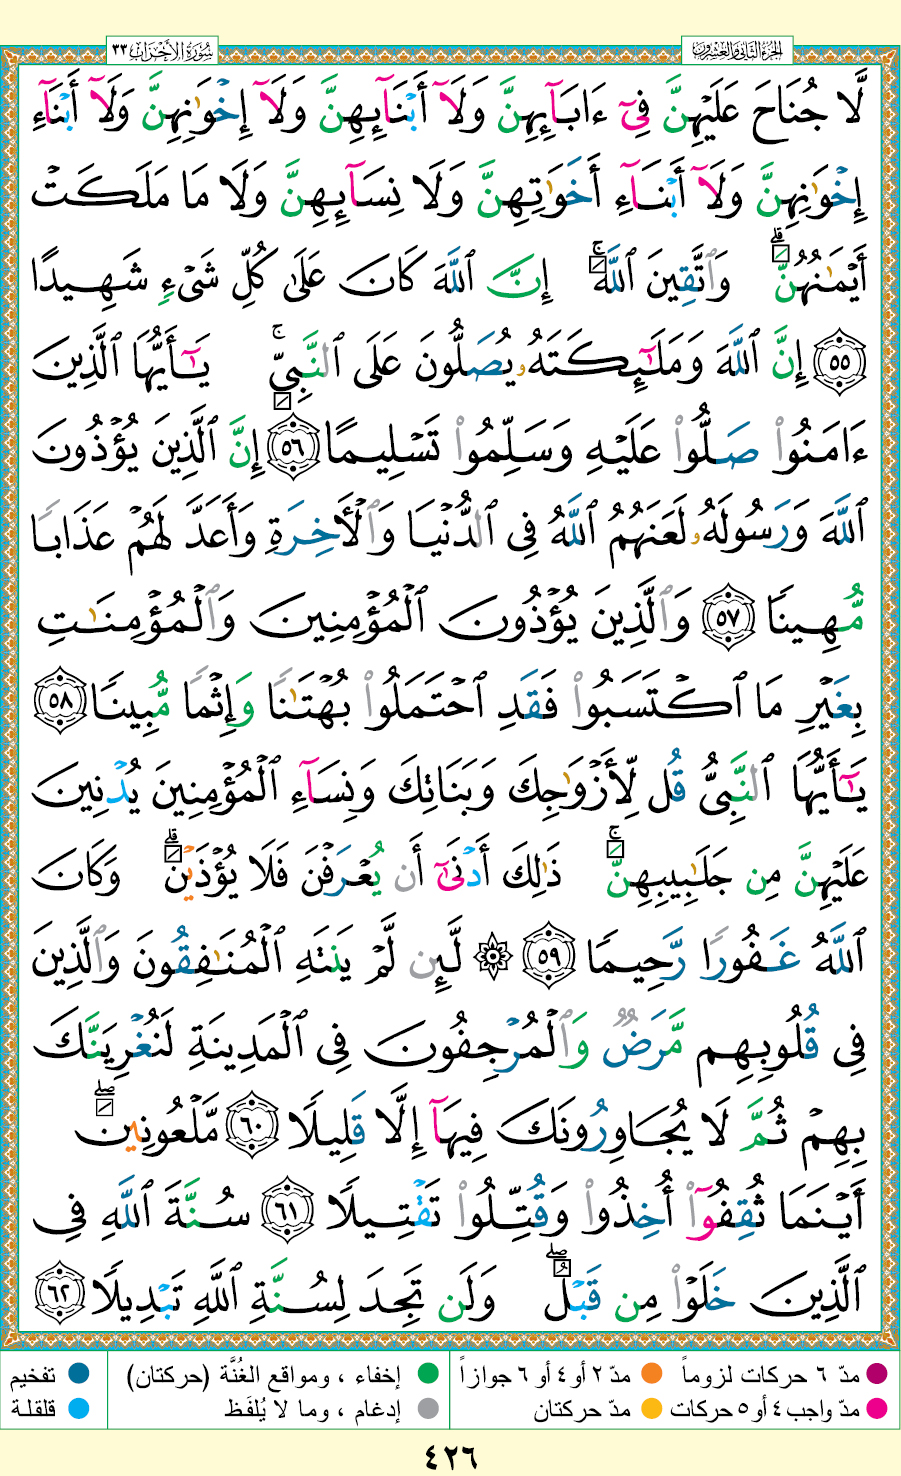 الجزء الثاني والعشرون
سورة الأحزاب ٣٣
لَّا جُنَاحَ عَلَيْهِنَّ فِىٓ ءَابَآئِهِنَّ وَلَآ أَبْنَآئِهِنَّ وَلَآ إِخْوَٰنِهِنَّ وَلَآ أَبْنَآءِ
إِخْوَٰنِهِنَّ وَلَآ أَبْنَآءِ أَخَوَٰتِهِنَّ وَلَا نِسَآئِهِنَّ وَلَا مَا مَلَكَتْ
أَيْمَٰنُهُنَّ ۗ وَٱتَّقِينَ ٱللَّهَ ۚ إِنَّ ٱللَّهَ كَانَ عَلَىٰ كُلِّ شَىْءٍ شَهِيدًا
٥٥ إِنَّ ٱللَّهَ وَمَلَٰٓئِكَتَهُۥ يُصَلُّونَ عَلَى ٱلنَّبِىِّ ۚ يَٰٓأَيُّهَا ٱلَّذِينَ
ءَامَنُوا۟ صَلُّوا۟ عَلَيْهِ وَسَلِّمُوا۟ تَسْلِيمًا ٥٦ إِنَّ ٱلَّذِينَ يُؤْذُونَ
ٱللَّهَ وَرَسُولَهُۥ لَعَنَهُمُ ٱللَّهُ فِى ٱلدُّنْيَا وَٱلْأَخِرَةِ وَأَعَدَّ لَهُمْ عَذَابًا
مُّهِينًا ٥٧ وَٱلَّذِينَ يُؤْذُونَ ٱلْمُؤْمِنِينَ وَٱلْمُؤْمِنَٰتِ
بِغَيْرِ مَا ٱكْتَسَبُوا۟ فَقَدِ ٱحْتَمَلُوا۟ بُهْتَٰنًا وَإِثْمًا مُّبِينًا ٥٨
يَٰٓأَيُّهَا ٱلنَّبِىُّ قُل لِّأَزْوَٰجِكَ وَبَنَاتِكَ وَنِسَآءِ ٱلْمُؤْمِنِينَ يُدْنِينَ
عَلَيْهِنَّ مِن جَلَٰبِيبِهِنَّ ۚ ذَٰلِكَ أَدْنَىٰٓ أَن يُعْرَفْنَ فَلَا يُؤْذَيْنَ ۗ وَكَانَ
ٱللَّهُ غَفُورًا رَّحِيمًا ٥٩ ۞ لَّئِن لَّمْ يَنتَهِ ٱلْمُنَٰفِقُونَ وَٱلَّذِينَ
فِى قُلُوبِهِم مَّرَضٌ وَٱلْمُرْجِفُونَ فِى ٱلْمَدِينَةِ لَنُغْرِيَنَّكَ
بِهِمْ ثُمَّ لَا يُجَاوِرُونَكَ فِيهَآ إِلَّا قَلِيلًا ٦٠ مَّلْعُونِينَ ۖ
أَيْنَمَا ثُقِفُوٓا۟ أُخِذُوا۟ وَقُتِّلُوا۟ تَقْتِيلًا ٦١ سُنَّةَ ٱللَّهِ فِى
ٱلَّذِينَ خَلَوْا۟ مِن قَبْلُ ۖ وَلَن تَجِدَ لِسُنَّةِ ٱللَّهِ تَبْدِيلًا ٦٢
مدّ ٦ حركات لزوماً مدّ ٢ أو ٤ أو ٦ جوازاً إخفاء ، ومواقع الغُنَّة (حركتان) تفخيم
مدّ واجب ٤ أو ٥ حركات مدّ حركتان إدغام ، وما لا يُلفَظ قلقلة
٤٢٦